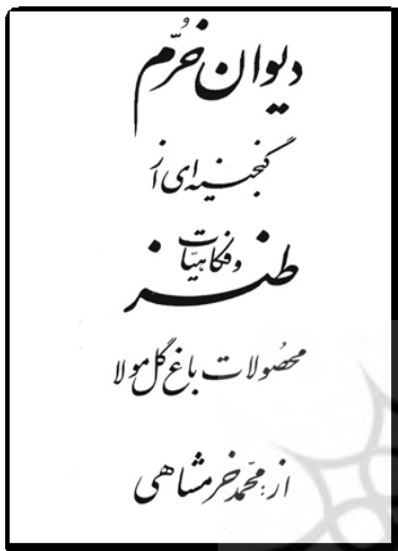 دیوان خُرّم
گنجینه‌ای از
طنز
و فکاهیّات
محصُولات باغ گل مولا
از: محمّد خرمشاهی